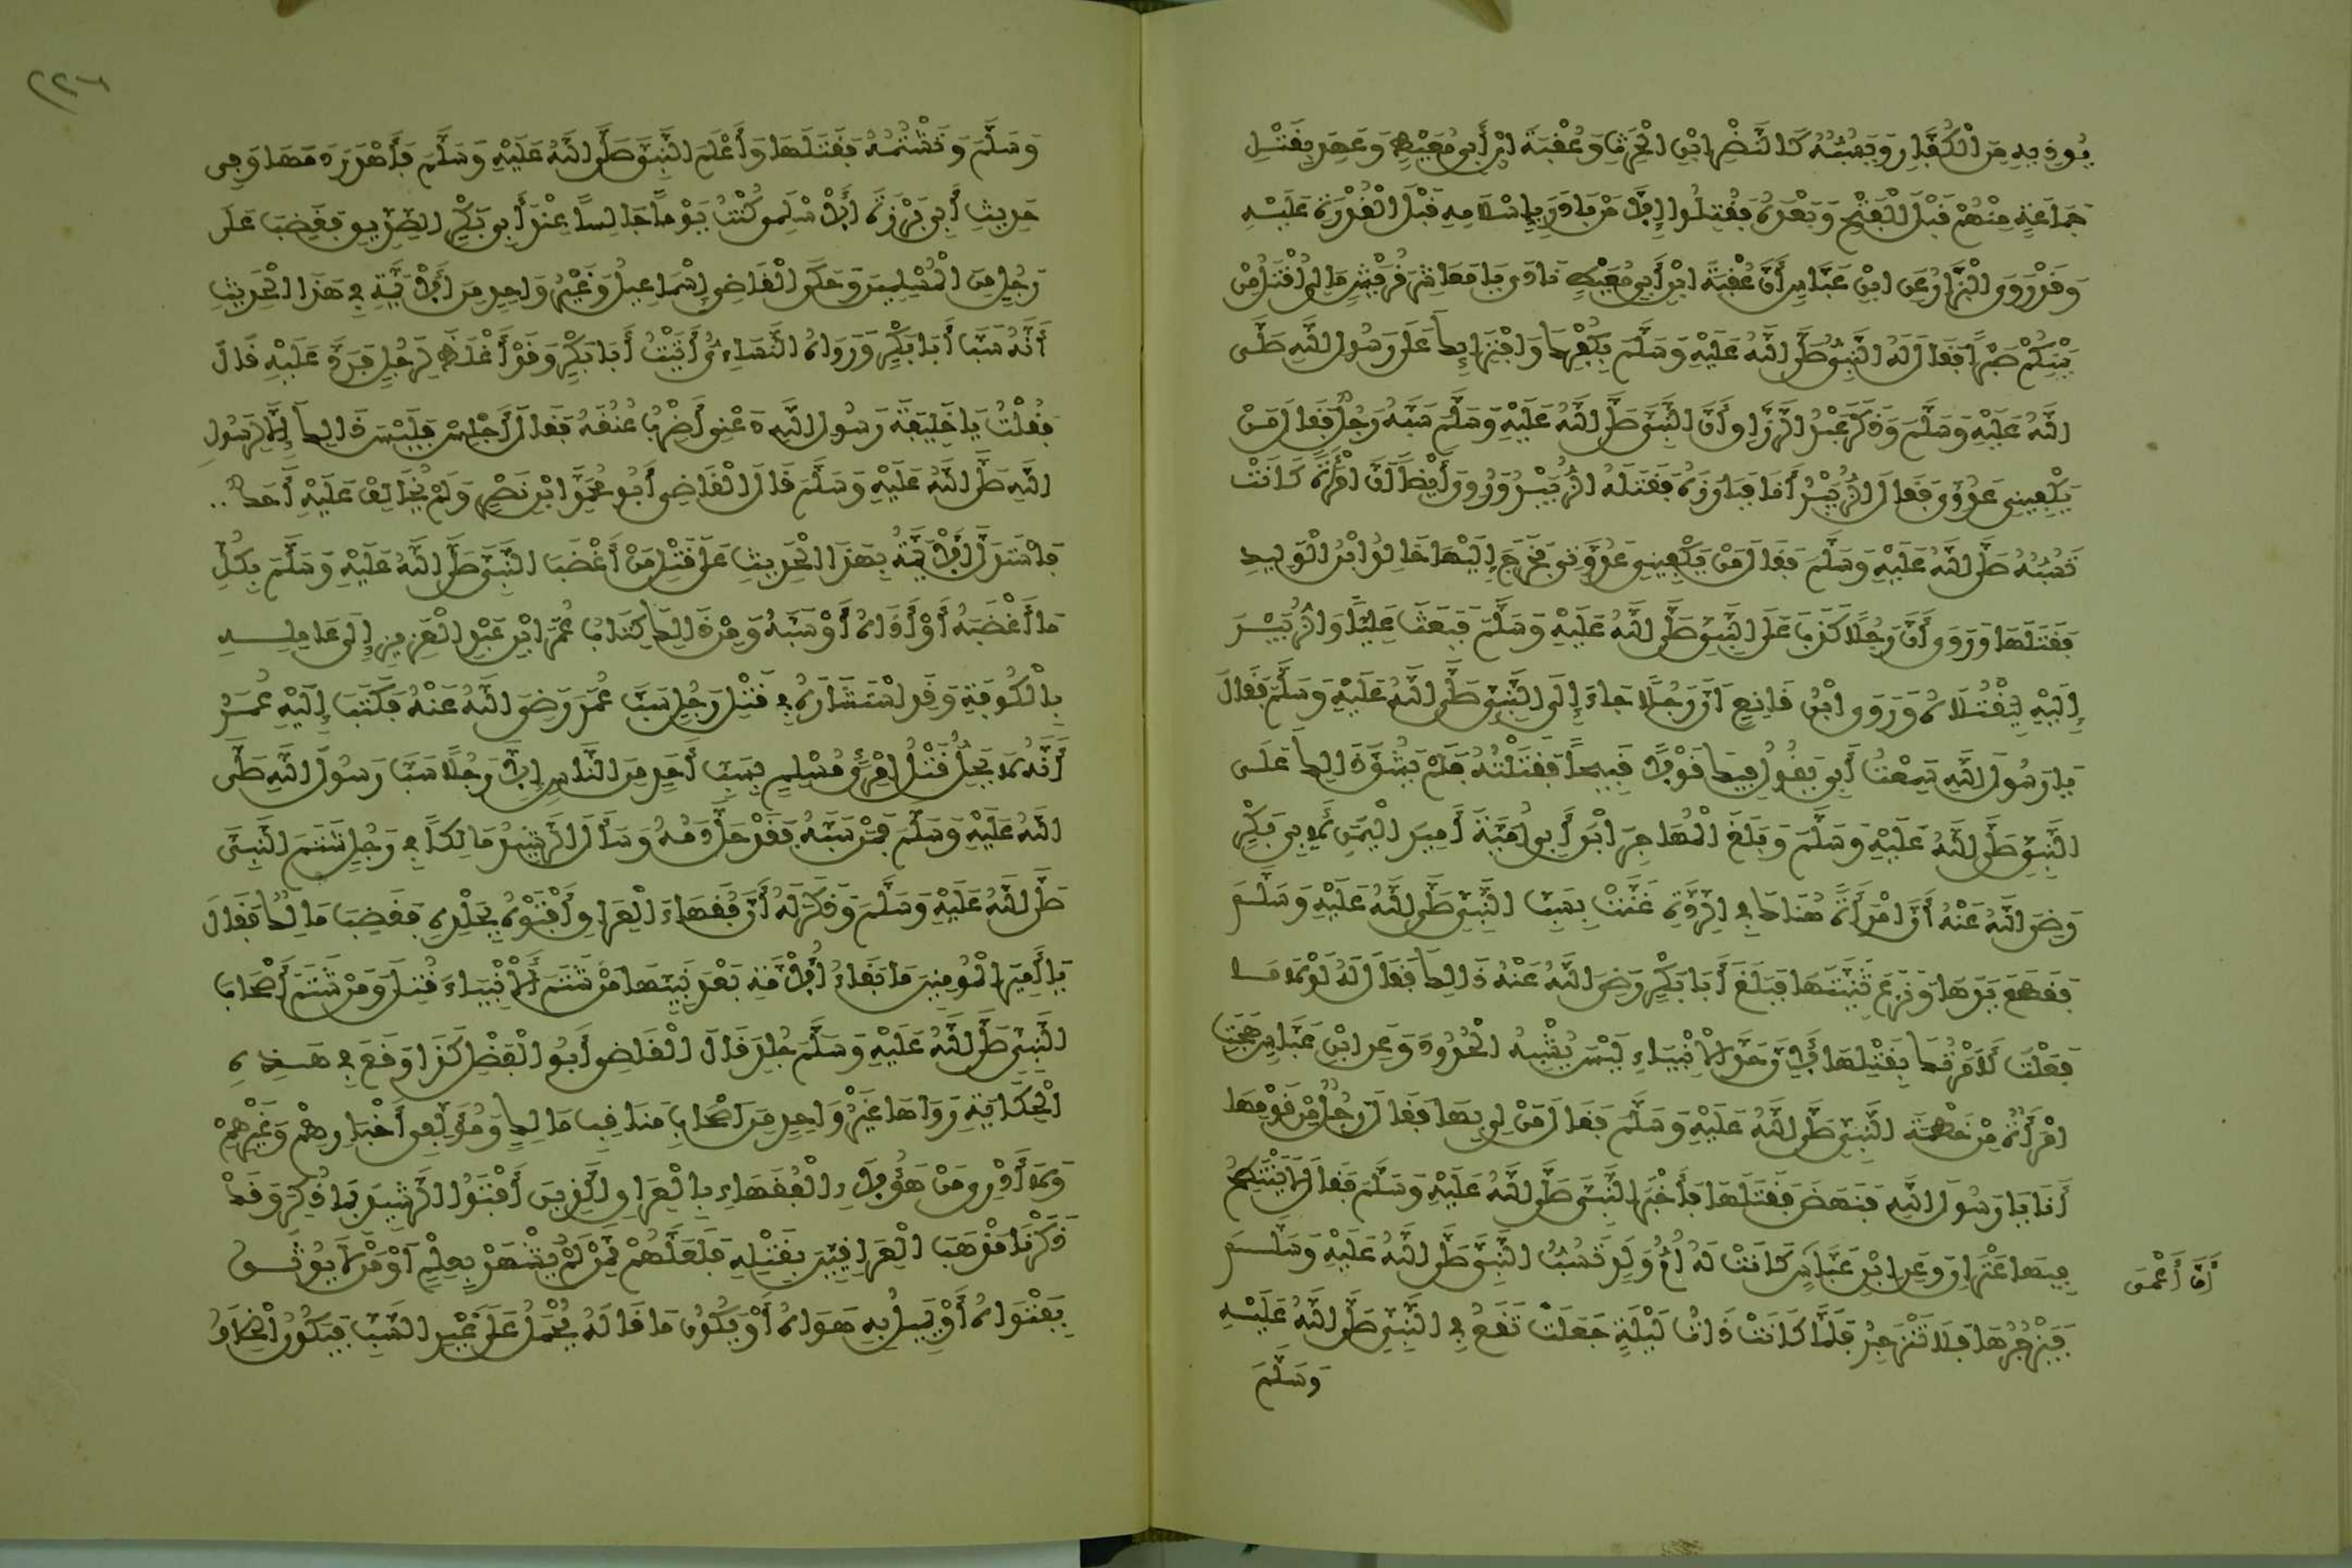 يُوذِيهِ مِنَ الْكُفَّارِ وَيَسُبُّهُ كَالنَّضْرِ ابْنِ الْحَرْثِ وَعُقْبَةَ ابْنِ أَبِي مُعَيْطٍ وَعَهِدَ بِقَتْلِ
جَمَاعَةٍ مِنْهُمْ قَبْلَ الْفَتْحِ وَبَعْدَهُ فَقُتِلُوا إِلَّا مَنْ بَادَرَ بِإِسْلَامِهِ قَبْلَ الْقُدْرَةِ عَلَيْهِ
وَقَدْ رَوَى الْبَزَّارُ عَنِ ابْنِ عَبَّاسٍ أَنَّ عُقْبَةَ ابْنَ أَبِي مُعَيْطٍ نَادَى يَا مَعَاشِرَ قُرَيْشٍ مَالِي أُقْتَلُ مِنْ
بَيْنِكُمْ صَبْرًا فَقَالَ لَهُ النَّبِيُّ صَلَّى اللَّهُ عَلَيْهِ وَسَلَّمَ بِكُفْرِكَ وَافْتِرَائِكَ عَلَى رَسُولِ اللَّهِ صَلَّى
اللَّهُ عَلَيْهِ وَسَلَّمَ وَذَكَرَ عَبْدُ الرَّزَّاقِ أَنَّ النَّبِيَّ صَلَّى اللَّهُ عَلَيْهِ وَسَلَّمَ سَبَّهُ رَجُلٌ فَقَالَ مَنْ
يَكْفِينِي عَدُوِّي فَقَالَ الزُّبَيْرُ أَنَا فَبَارَزَهُ فَقَتَلَهُ الزُّبَيْرُ وَرُوِيَ أَيْضًا أَنَّ امْرَأَةً كَانَتْ
تَسُبُّهُ صَلَّى اللَّهُ عَلَيْهِ وَسَلَّمَ فَقَالَ مَنْ يَكْفِينِي عَدُوَّتِي فَخَرَجَ إِلَيْهَا خَالِدُ ابْنُ الْوَلِيدِ
فَقَتَلَهَا وَرَوَى أَنَّ رَجُلًا كَذَبَ عَلَى النَّبِيِّ صَلَّى اللَّهُ عَلَيْهِ وَسَلَّمَ فَبَعَثَ عَلِيًّا وَالزُّبَيْرَ
إِلَيْهِ لِيَقْتُلَاهُ وَرَوَى ابْنُ قَانِعٍ أَنَّ رَجُلًا جَاءَ إِلَى النَّبِيِّ صَلَّى اللَّهُ عَلَيْهِ وَسَلَّمَ فَقَالَ
يَا رَسُولَ اللَّهِ سَمِعْتُ أَبِي يَقُولُ فِيكَ قَوْلًا قَبِيحًا فَقَتَلْتُهُ فَلَمْ يَشُقَّ ذَالِكَ عَلَى
النَّبِيِّ صَلَّى اللَّهُ عَلَيْهِ وَسَلَّمَ وَبَلَغَ الْمُهَاجِرَ ابْنَ أَبِي أُمَيَّةَ أَمِيرَ الْيَمَنِ لِأَبِي بَكْرٍ
رَضِيَ اللَّهُ عَنْهُ أَنَّ امْرَأَةً هُنَاكَ فِي الرِّدَّةِ غَنَّتْ بِسَبِّ النَّبِيِّ صَلَّى اللَّهُ عَلَيْهِ وَسَلَّمَ
فَقَطَعَ يَدَهَا وَنَزَعَ ثَنِيَّتَهَا فَبَلَغَ أَبَا بَكْرٍ رَضِيَ اللَّهُ عَنْهُ ذَالِكَ فَقَالَ لَهُ لَوْلَا مَا
فَعَلْتَ لَأَمَرْتُكَ بِقَتْلِهَا لِأَنَّ حَدَّ الْأَنْبِيَاءِ لَيْسَ يُشْبِهُ الْحُدُودَ وَعَنِ ابْنِ عَبَّاسٍ هَجَتِ
امْرَأَةٌ مِنْ خَطْمَةَ النَّبِيَّ صَلَّى اللَّهُ عَلَيْهِ وَسَلَّمَ فَقَالَ مَنْ لِي بِهَا فَقَالَ رَجُلٌ مِنْ قَوْمِهَا
أَنَا يَا رَسُولَ اللَّهِ فَنَهَضَ فَقَتَلَهَا فَأَخْبَرَ النَّبِيَّ صَلَّى اللَّهُ عَلَيْهِ وَسَلَّمَ فَقَالَ لَا يَنْتَطِحُ
فِيهَا عَنْزَانِ وَعَنِ ابْنِ عَبَّاسٍ كَانَتْ لَهُ أُمُّ وَلَدٍ تَسُبُّ النَّبِيَّ صَلَّى اللَّهُ عَلَيْهِ وَسَلَّمَ
أَنَّ أَعْمَى
فَيَزْجُرُهَا فَلَا تَنْزَجِرُ فَلَمَّا كَانَتْ ذَاتَ لَيْلَةٍ جَعَلَتْ تَقَعُ فِي النَّبِيِّ صَلَّى اللَّهُ عَلَيْهِ
وَسَلَّمَ
٢٢٦
وَسَلَّمَ وَتَشْتُمُهُ فَقَتَلَهَا وَأَعْلَمَ النَّبِيَّ صَلَّى اللَّهُ عَلَيْهِ وَسَلَّمَ فَأَهْدَرَ دَمَهَا وَفِي
حَدِيثِ أَبِي بَرْزَةَ الْأَسْلَمِي كُنْتُ يَوْمًا جَالِسًا عِنْدَ أَبِي بَكْرٍ الصِّدِّيقِ فَغَضِبَ عَلَى
رَجُلٍ مِنَ الْمُسْلِمِينَ وَحَكَى الْقَاضِي إِسْمَاعِيلُ وَغَيْرُ وَاحِدٍ مِنَ الْأَئِمَّةِ فِي هَذَا الْحَدِيثِ
أَنَّهُ سَبَّ أَبَا بَكْرٍ وَرَوَاهُ النَّسَاءِيُّ أَتَيْتُ أَبَا بَكْرٍ وَقَدْ أَغْلَظَ لِرَجُلٍ فَرَدَّ عَلَيْهِ قَالَ
فَقُلْتُ يَا خَلِيفَةَ رَسُولِ اللَّهِ دَعْنِي أَضْرِبْ عُنُقَهُ فَقَالَ اجْلِسْ فَلَيْسَ ذَالِكَ إِلَّا لِرَسُولِ
اللَّهِ صَلَّى اللَّهُ عَلَيْهِ وَسَلَّمَ قَالَ الْقَاضِي أَبُو مُحَمَّدٍ ابْنُ نَصْرٍ وَلَمْ يُخَالِفْ عَلَيْهِ أَحَدٌ
فَاسْتَدَلَّ الْأَئِمَّةُ بِهَذَا الْحَدِيثِ عَلَى قَتْلِ مَنْ أَغْضَبَ النَّبِيَّ صَلَّى اللَّهُ عَلَيْهِ وَسَلَّمَ بِكُلِّ
مَا أَغْضَبَهُ أَوْ أَذَاهُ أَوْ سَبَّهُ وَمِنْ ذَالِكَ كِتَابُ عُمَرَ ابْنِ عَبْدِ الْعَزِيزِ إِلَى عَامِلِهِ
بِالْكُوفَةِ وَقَدِ اسْتَشَارَهُ فِي قَتْلِ رَجُلٍ سَبَّ عُمَرَ رَضِيَ اللَّهُ عَنْهُ فَكَتَبَ إِلَيْهِ عُمَرُ
أَنَّهُ لَا يَحِلُّ قَتْلُ امْرِئٍ مُسْلِمٍ بِسَبِّ أَحَدٍ مِنَ النَّاسِ إِلَّا رَجُلًا سَبَّ رَسُولَ اللَّهِ صَلَّى
اللَّهُ عَلَيْهِ وَسَلَّمَ فَمَنْ سَبَّهُ فَقَدْ حَلَّ دَمُهُ وَسَأَلَ الرَّشِيدُ مَالِكًا فِي رَجُلٍ شَتَمَ النَّبِيَّ
صَلَّى اللَّهُ عَلَيْهِ وَسَلَّمَ وَذَكَرَ لَهُ أَنَّ فُقَهَاءَ الْعِرَاقِ أَفْتَوْهُ بِجَلْدِهِ فَغَضِبَ مَالِكٌ فَقَالَ
يَا أَمِيرَ الْمُومِنِينَ مَا بَقَاءُ الْأُمَّةِ بَعْدَ نَبِيِّهَا مَنْ شَتَمَ الْأَنْبِيَاءَ قُتِلَ وَمَنْ شَتَمَ أَصْحَابَ
النَّبِيِّ صَلَّى اللَّهُ عَلَيْهِ وَسَلَّمَ جُلِدَ قَالَ الْقَاضِي أَبُو الْفَضْلِ كَذَا وَقَعَ فِي هَذِهِ
الْحِكَايَةِ رَوَاهَا غَيْرُ وَاحِدٍ مِنْ أَصْحَابِ مَنَاقِبِ مَالِكٍ وَمُؤَلِّفِي أَخْبَارِهِمْ وَغَيْرِهِمْ
وَلَا أَدْرِي مَنْ هَؤُلَاءِ الْفُقَهَاءِ بِالْعِرَاقِ الَّذِينَ أَفْتَوُا الرَّشِيدَ بِمَا ذُكِرَ وَقَدْ
ذَكَرْنَا مَذْهَبَ الْعِرَاقِيِّينَ بِقَتْلِهِ فَلَعَلَّهُمْ مِمَّنْ لَمْ يُشْهَرْ بِعِلْمٍ أَوْ مَنْ لَا يُوثَقُ
بِفَتْوَاهُ أَوْ يَمِيلُ بِهِ هَوَاهُ أَوْ يَكُونُ مَا قَالَهُ يُحْمَلُ عَلَى غَيْرِ السَّبِّ فَيَكُونُ الْخِلَافُ